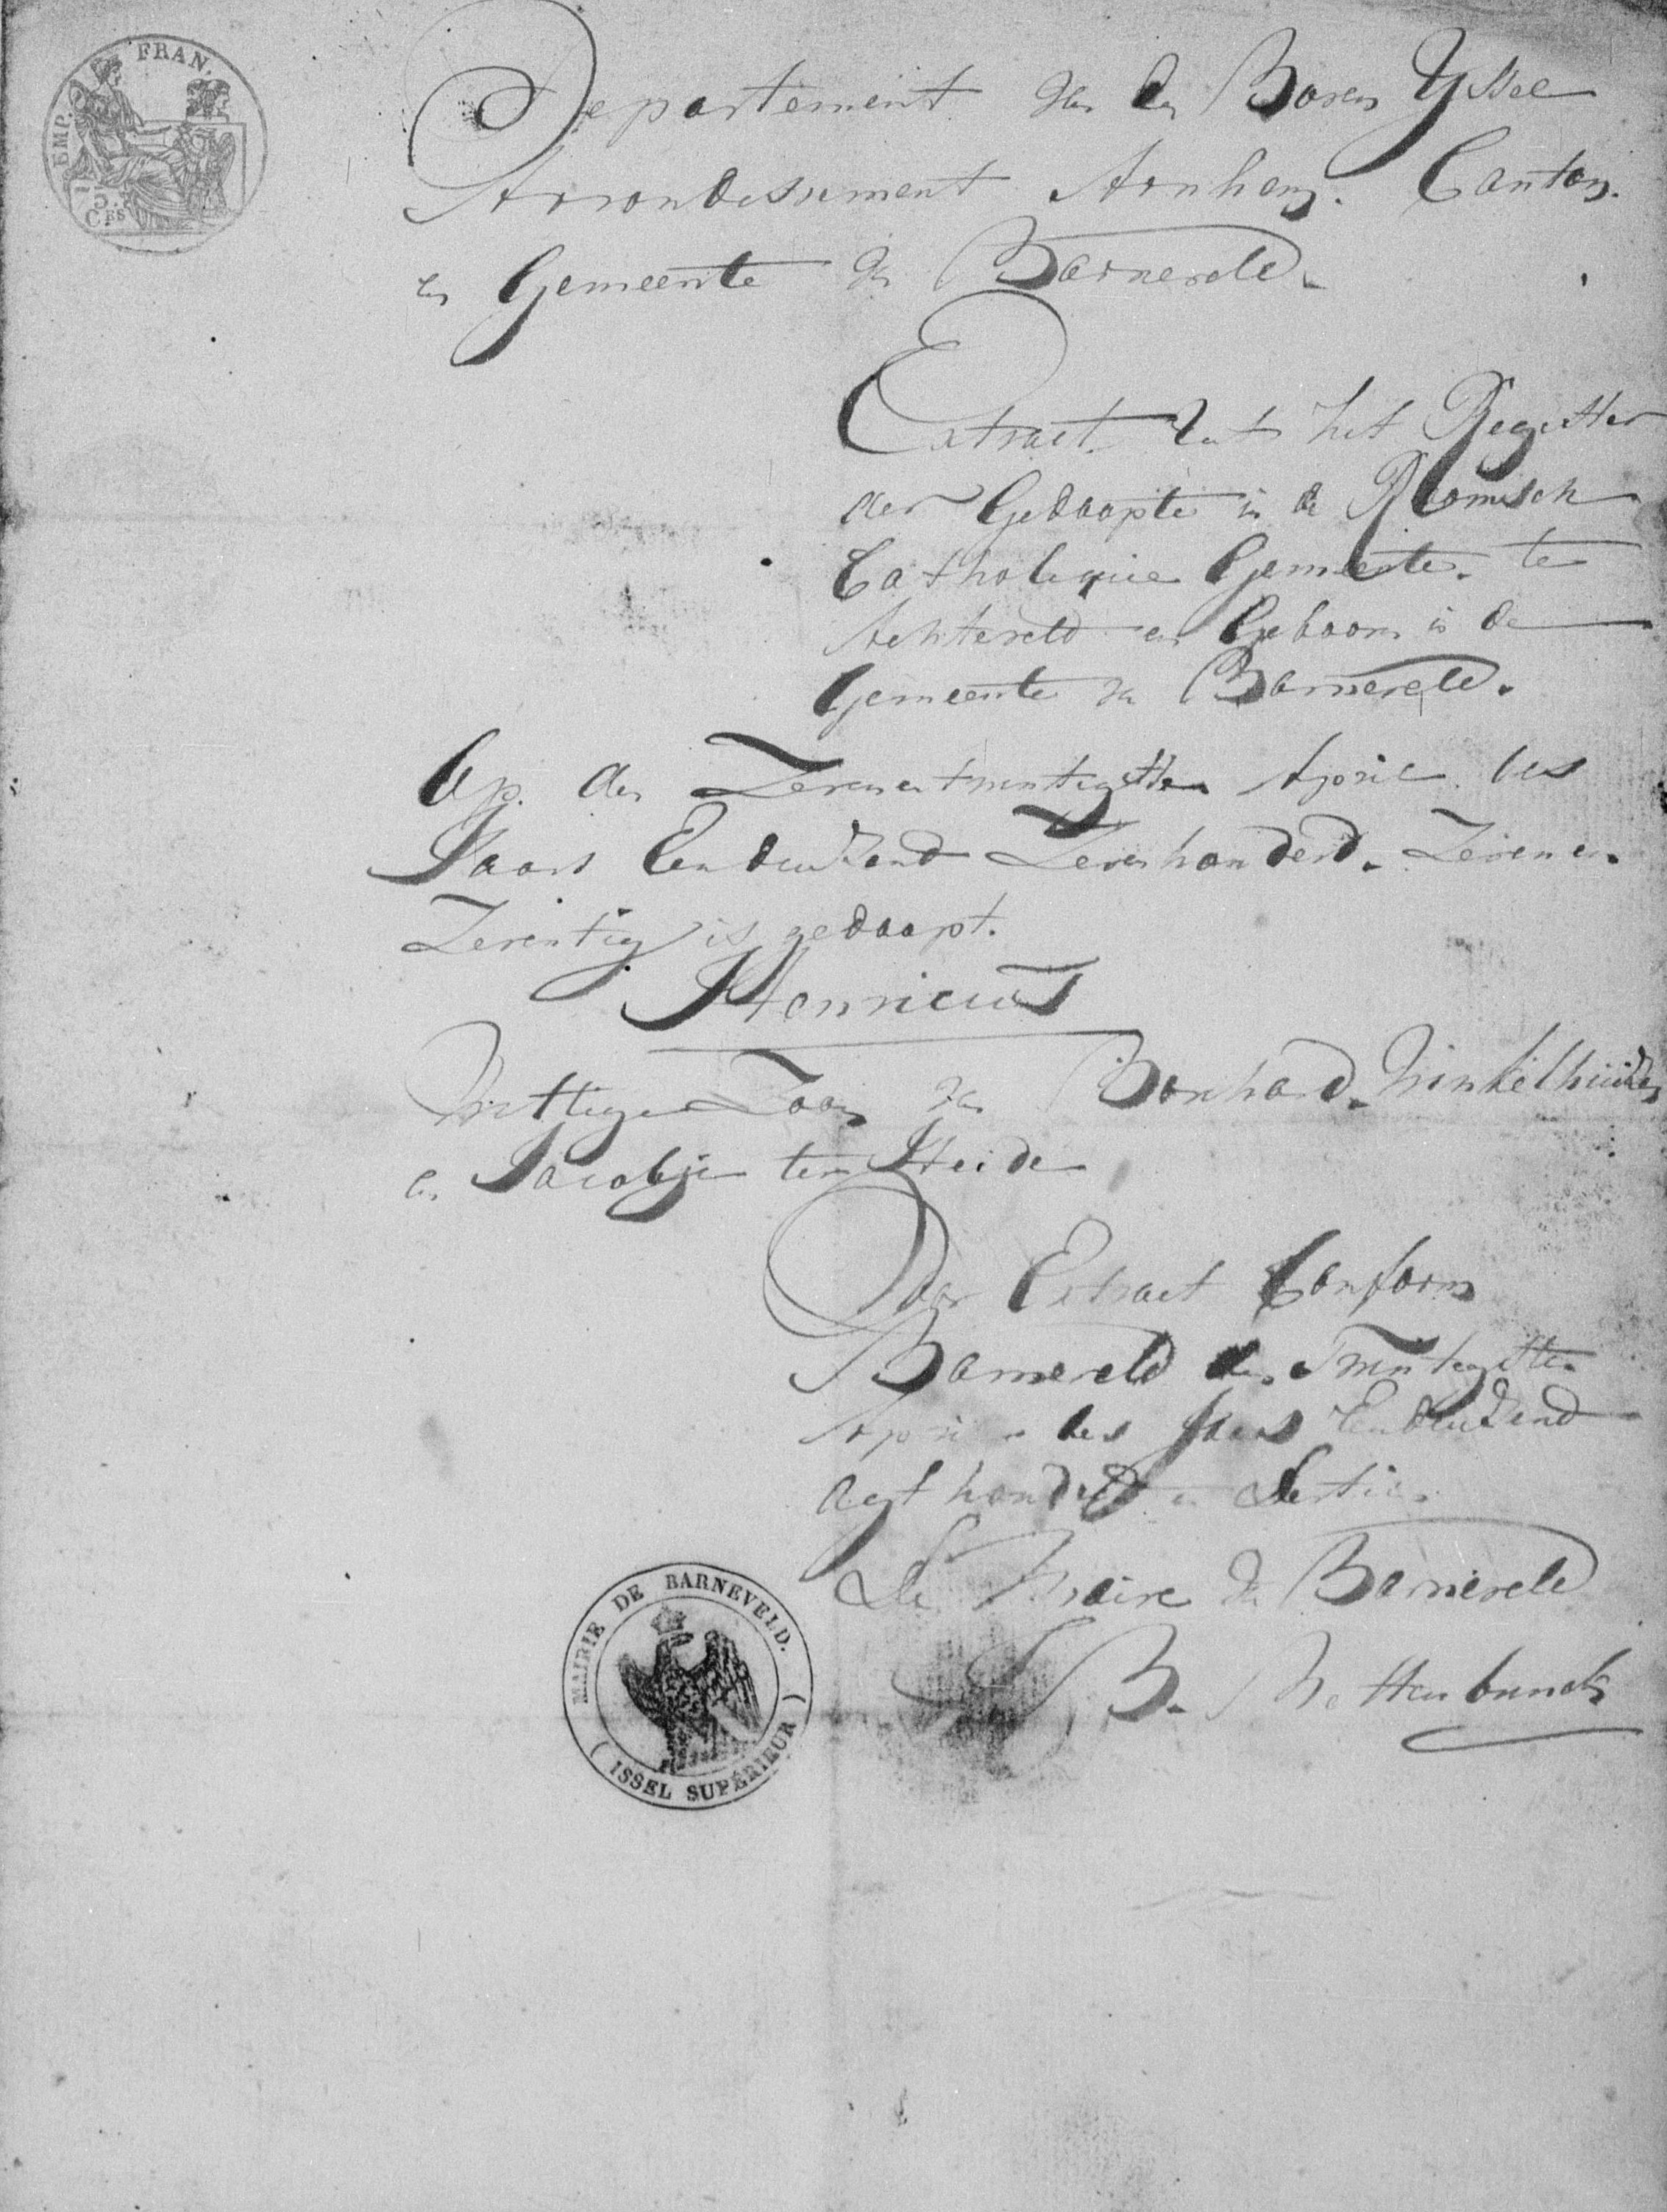 EMP. FRAN.
75.
CES
Departement van den Boven Yssel
Arrondissement Arnhem. Canton
en Gemeente van Barneveld.
Extract uit het Register
der Gedoopte in de Romisch
Catholique Gemeente te
Achterveld en Geboorn in de
Gemeente van Barneveld.
Op den Zevenentwintigsten April des
Jaars Eenduizend Zevenhonderd Zevenen
Zeventig is gedoopt.
Henricus
Wettige Zoon van Bernhard Winkelhuisen
en Jacobje ter Heide
Voor Extract Conform
Barneveld den Twintigsten
April des Jaars Eenduizend
agthonderd en dertien
De Maire van Barneveld
B.
MAIRIE DE BARNEVELD.
(ISSEL SUPÉRIEUR)